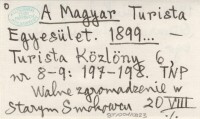 A Magyar Turista
Egyesület. 1899... —
Turista Közlöny 6,
nr 8-9: 197-198. TNP
Walne zgromadzenie w
Starym Smokowcu 20 VIII